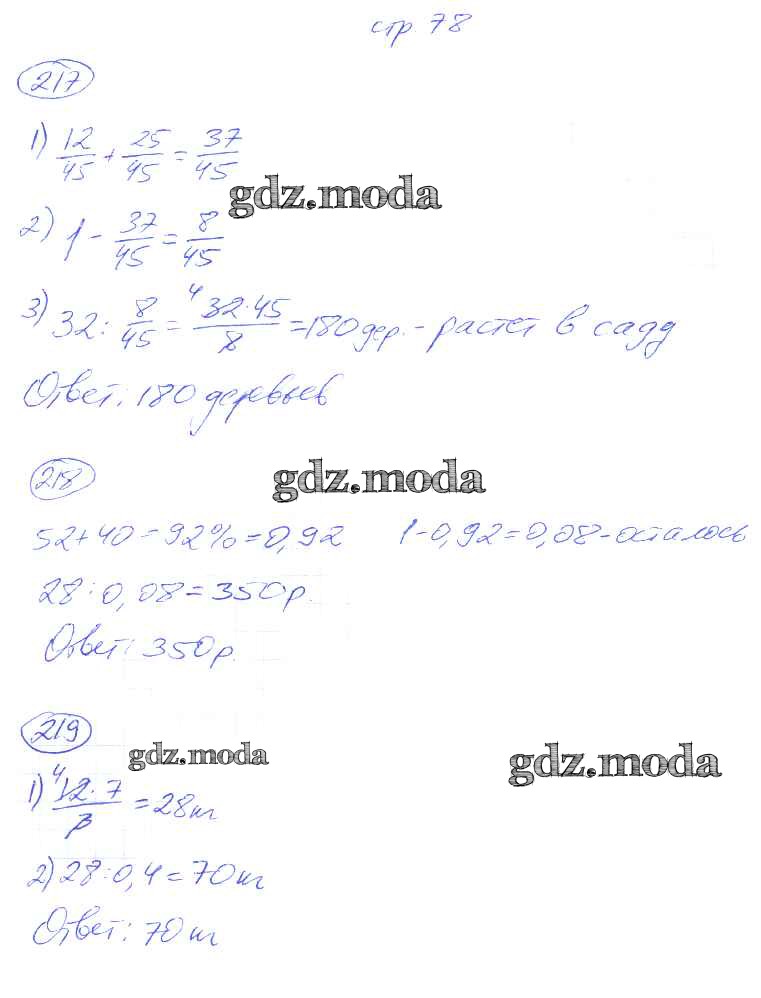 стр 78
217
1) 12/45 + 25/45 = 37/45
gdz.moda
2) 1 - 37/45 = 8/45
3) 32 : 8/45 = 4 32·45/8 = 180 дер. - растет в саду
Ответ: 180 деревьев
218
gdz.moda
52+40=92%=0,92 1-0,92=0,08-осталось
28:0,08=350р.
Ответ: 350р.
219
gdz.moda
gdz.moda
1) 4 12·7/3 = 28 кг
2) 28:0,4=70 кг
Ответ: 70 кг